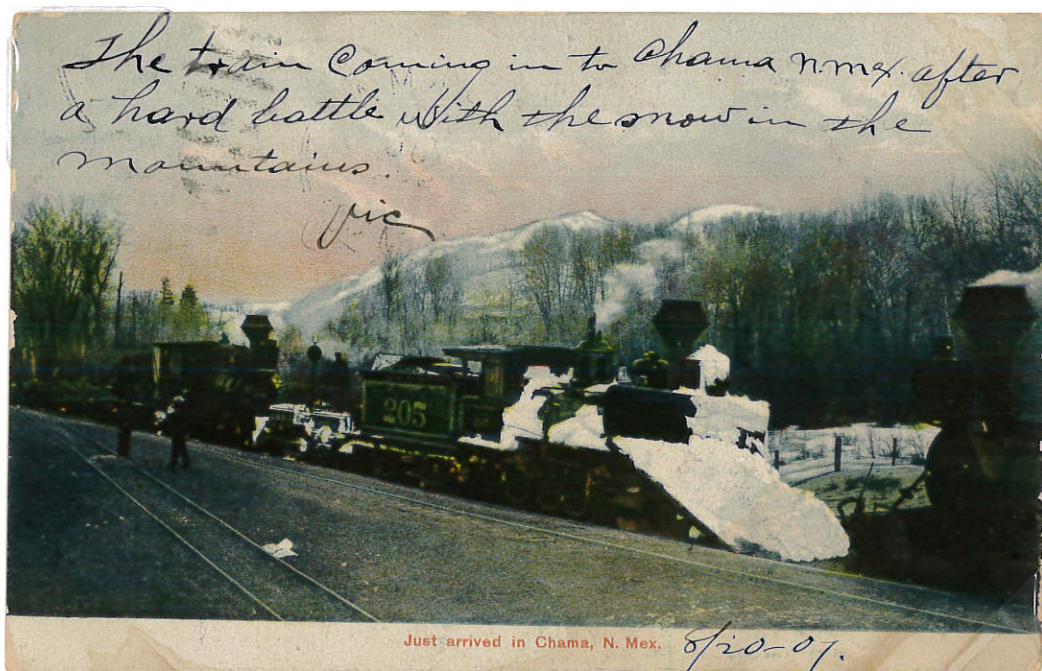 The train coming in to Chama N.Mex. after
a hard battle with the snow in the
mountains.
Vic
205
Just arrived in Chama, N. Mex. 8/20-07.